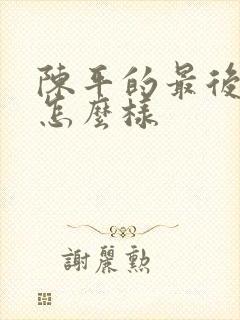 陳平的最後
怎麼樣
謝麗勲